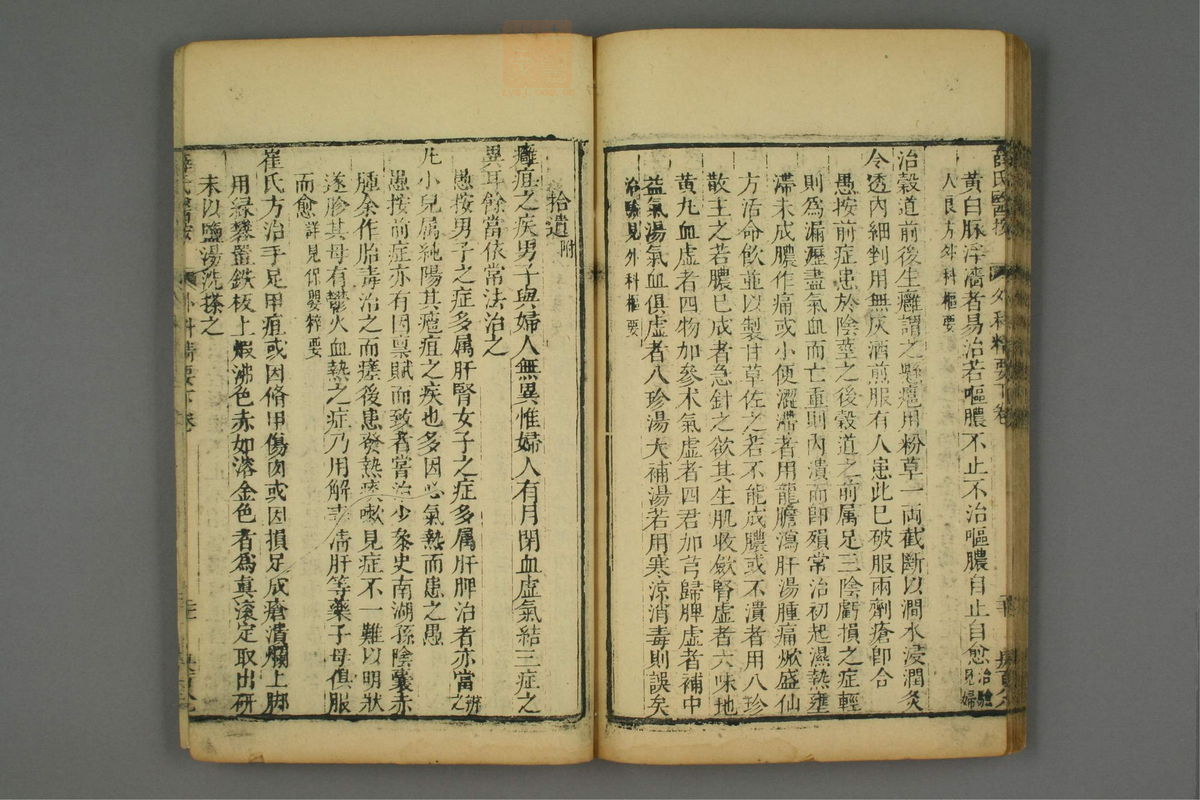 黃白脉浮濇者易治若嘔膿不止不治嘔膿自止自愈治驗見婦
人良方外科樞要
治穀道前後生癰謂之懸癰用粉草一兩截斷以澗水浸潤炙
令透內細剉用無灰酒煎服有人患此巳破服兩劑瘡卽合
愚按前症患於陰莖之後穀道之前属足三陰虧損之症輕
則為漏瀝盡氣血而亡重則內潰而卽殞常治初起濕熱壅
滯未成膿作痛或小便澀滯者用龍膽瀉肝湯腫痛焮盛仙
方活命飲並以製甘草佐之若不能成膿或不潰者用八珍
散主之若膿巳成者急針之欲其生肌收斂腎虛者六味地
黃九血虛者四物加參术氣虛者四君加芎歸脾虛者補中
益氣湯氣血俱虛者八珍湯大補湯若用寒涼消毒則誤矣
治驗見外科樞要
拾遺附
癰疽之疾男子與婦人無異惟婦人有月閉血虛氣結三症之
異耳餘當依常法治之
愚按男子之症多属肝腎女子之症多属肝脾治者亦當辨之
凡小兒属純陽其瘡疽之疾也多因心氣熱而患之愚
愚按前症亦有因稟賦而致者嘗治少叅史南湖孫陰囊赤
腫余作胎毒治之而瘥後患發熱痰嗽見症不一難以明狀
遂胗其母有鬱火血熱之症乃用解毒清肝等藥子母俱服
而愈詳見保嬰粹要
崔氏方治手足甲疽或因脩甲傷肉或因損足成瘡潰爛上脚
用緑礬置鉄板上煅沸色赤如溶金色者為真滚定取出研
末以鹽湯洗搽之
薛氏醫按 外科精要下卷